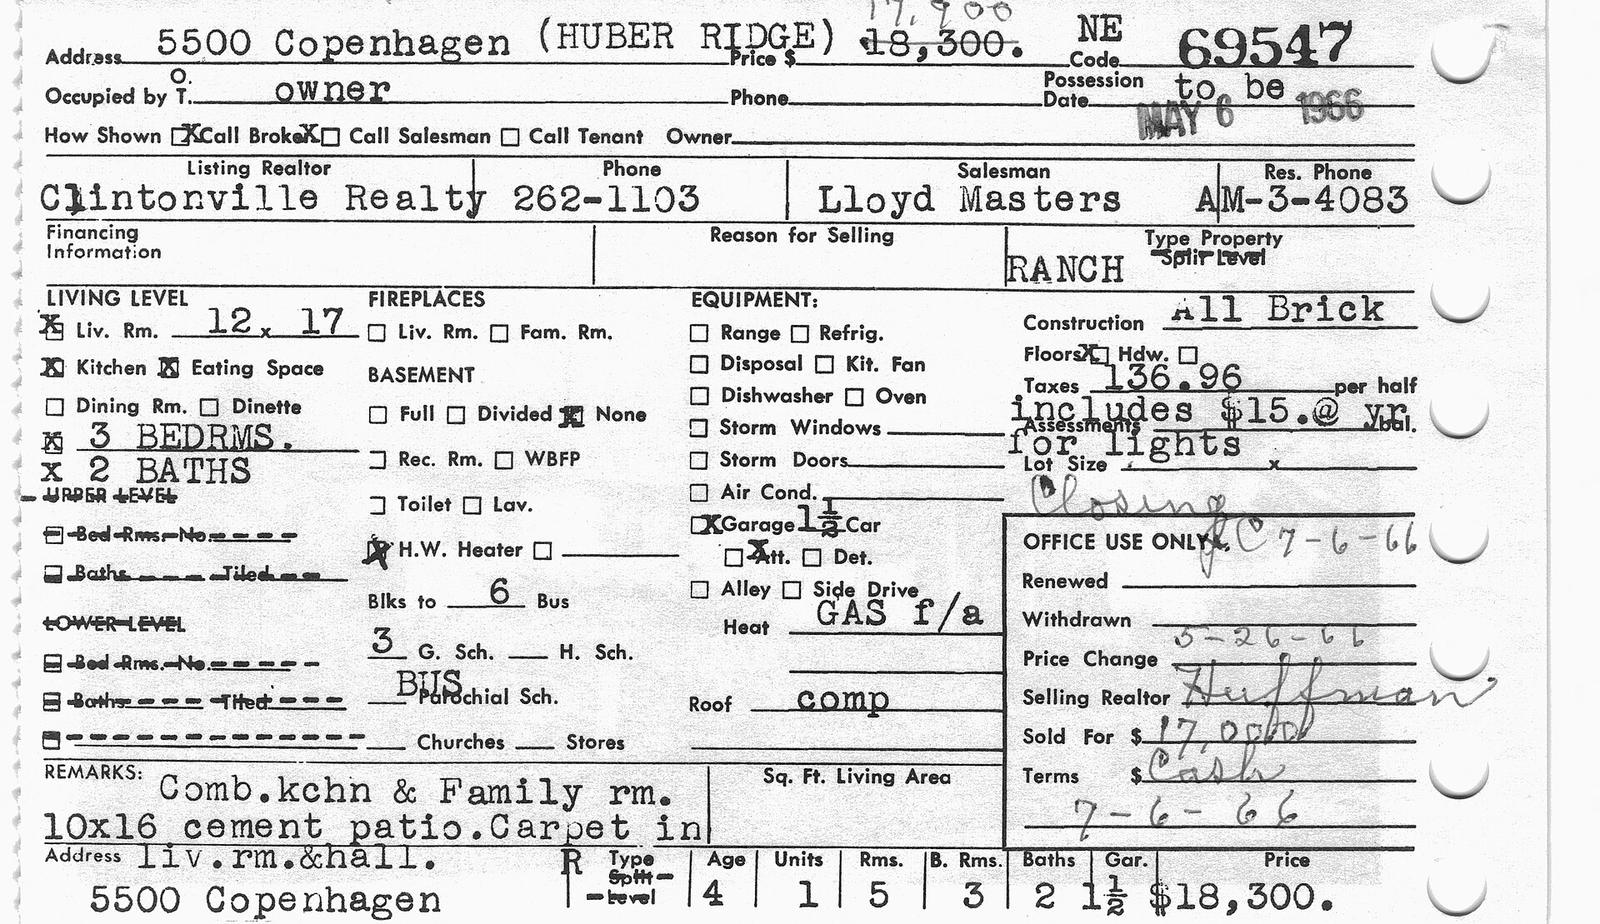 17,900
Address 5500 Copenhagen (HUBER RIDGE) Price $ 18,300. NE Code 69547
Occupied by O. T. owner Phone Possession Date to be
MAY 6 1966
How Shown X Call Broker X Call Salesman Call Tenant Owner
Listing Realtor Phone Salesman Res. Phone
Clintonville Realty 262-1103 Lloyd Masters AM-3-4083
Financing Information Reason for Selling Type Property
Split Level
RANCH
LIVING LEVEL FIREPLACES EQUIPMENT: Construction All Brick
X Liv. Rm. 12 x 17 Liv. Rm. Fam. Rm. Range Refrig.
Floors X Hdw.
X Kitchen X Eating Space BASEMENT Disposal Kit. Fan
Taxes 136.96 per half
Dining Rm. Dinette Full Divided X None Dishwasher Oven
includes $15.@ yr.
Assessments bal.
X 3 BEDRMS. Storm Windows for lights
x 2 BATHS Rec. Rm. WBFP Storm Doors Lot Size x
UPPER LEVEL Toilet Lav. Air Cond. Closing
Bed Rms. No. X Garage 1½ Car OFFICE USE ONLY 7-6-66
X H.W. Heater X Att. Det.
Baths Tiled Blks to 6 Bus Alley Side Drive Renewed
Heat GAS f/a Withdrawn
LOWER LEVEL 5-26-66
Bed Rms. No. 3 G. Sch. H. Sch. Price Change
Baths Tiled BUS Parochial Sch. Roof comp Selling Realtor Huffman
Churches Stores Sold For $ 17,000
REMARKS: Comb.kchn & Family rm. Sq. Ft. Living Area Terms $ Cash
10x16 cement patio.Carpet in 7-6-66
liv.rm.&hall.
Address R Type Split Level Age Units Rms. B. Rms. Baths Gar. Price
5500 Copenhagen 4 1 5 3 2 1½ $18,300.